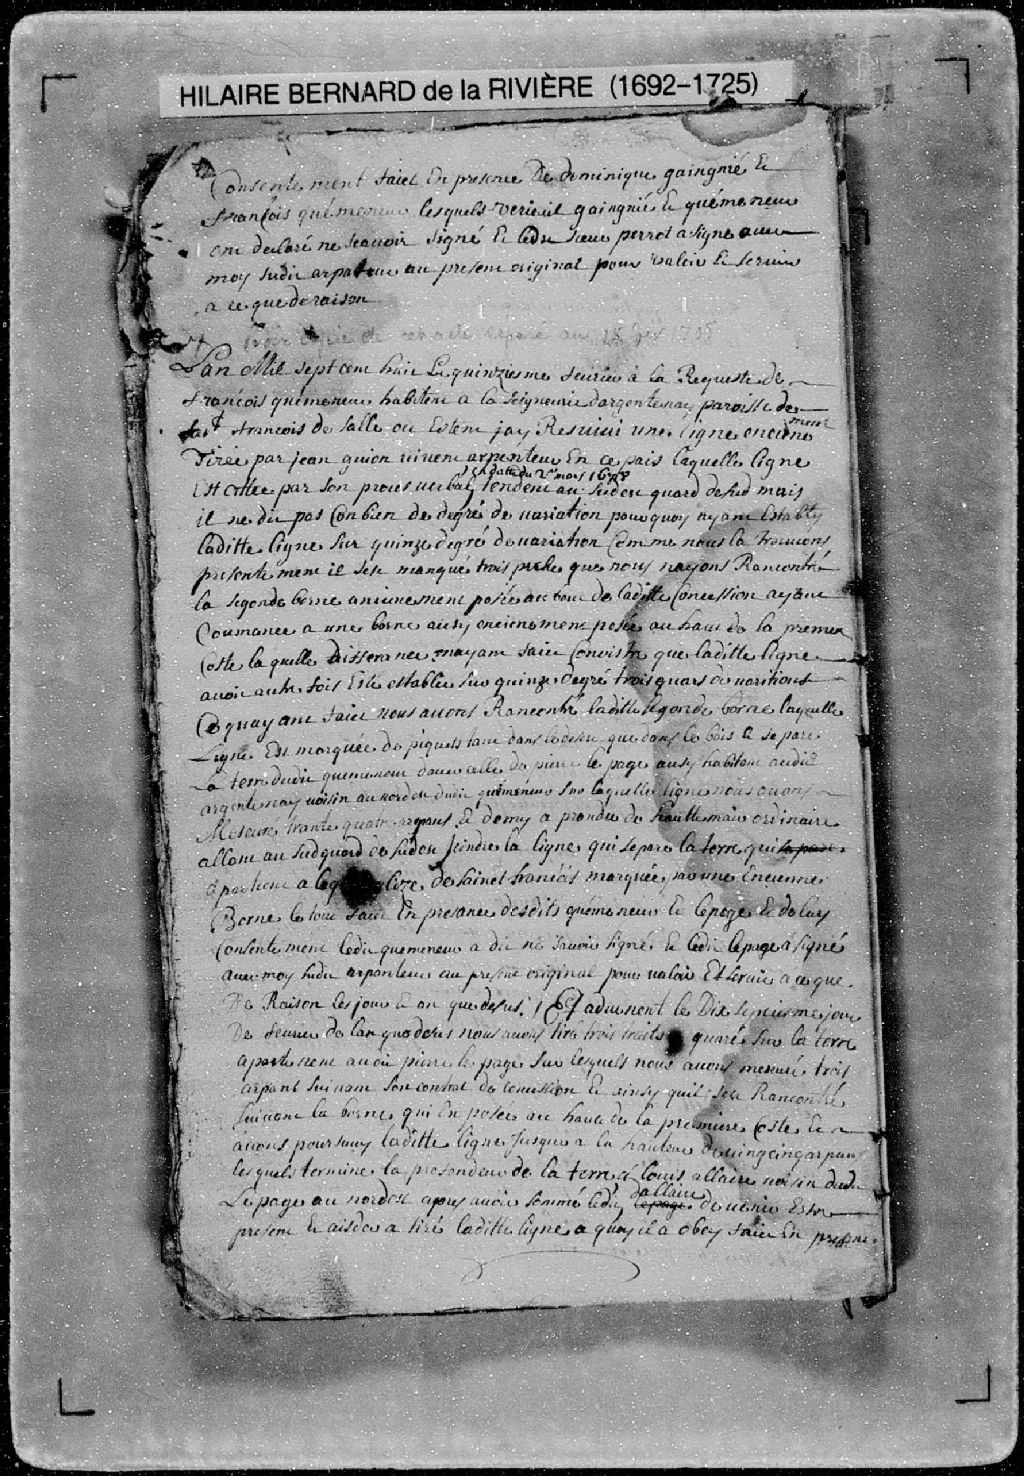 HILAIRE BERNARD de la RIVIÈRE (1692-1725)
Consentement faict En presence De dominique gaingnié Et
françois quémeneur lesquels gaingnié Et quémeneur
ont declaré ne scavoir signé Et ledit sieur perrot a signé avec
moy sudit arpenteur au present original pour valoir Et servir
a ce que de raison
copie de cet acte au 15 1708
Lan Mil sept cent huict Le quinziesme fevrier à la Requeste de
françois quemeneur habitant a la seigneurie dargentenay paroisse de
sainct francois de salle ou Estant jay Resuivi une ligne enciennement
Tirée par jean guion vivant arpenteur En ce pais laquelle ligne
En datte du 2e mars 1678
Est cottée par son proces verbal tendent au sudest quard de sud mais
il ne dit pas Conbien de degré de variation pourquoy ayant Establÿ
laditte ligne sur quinze degré de variation Comme nous la trouvons
presentement il sest manqué trois perche que nous nayons Rancontré
la segonde borne ancienement posée au bout de laditte Concession ayant
Coumancé a une borne aussy enciennement posée au haut de la premiere
Coste laquelle differance mayant faict Connoistre que laditte ligne
avoit autre fois Esté establie sur quinze degré trois quars de varitions
Ce quayant faict nous avons Rancontré laditte segonde borne laquelle
Ligne Est marquée de piquets tant dans le desert que dans le bois Et separe
La terre dudit quemeneur davec celle de pierre le page aussy habitant audit
argentenay voisin au nordest dudit quémeneur sur laquelle ligne nous avons
Mesuré trante quatre arpans Et demy a prandre de haulte marée ordinaire
allant au sud quard de sudest joindre la ligne qui separe la terre qui
apartient a de sainct françois marquée par une Encienne
Borne le tout faict En presance desdits quémeneur Et lepage Et de leur
Consentement ledit quemeneur a dit ne scavoir signé Et ledit lepage a signé
avec moy sudit arpanteur au present original pour valoir Et servir a ce que
De Raison les jour Et an que desus. Et advenent le Dix septiesme jour
De fevrier de lan que desus nous avons tiré trois traits quaré sur la terre
apartenent audit pierre le page sur lesquels nous avons mesuré trois
arpant suivant son contrat de concession Et ainsy quil sest Rancontré
suivant la borne qui En posée au haut de la premiere Coste Et
avons poursuivy laditte ligne jusque a la hauteur de vingcinq arpans
lesquels termine la profondeur de la terre Louis allaire voisin dudit
Lepage au nordest apres avoir sommé ledit dallaire de venir Estre
present Et aisder a tiré laditte ligne a quoy il a obey faict En presence